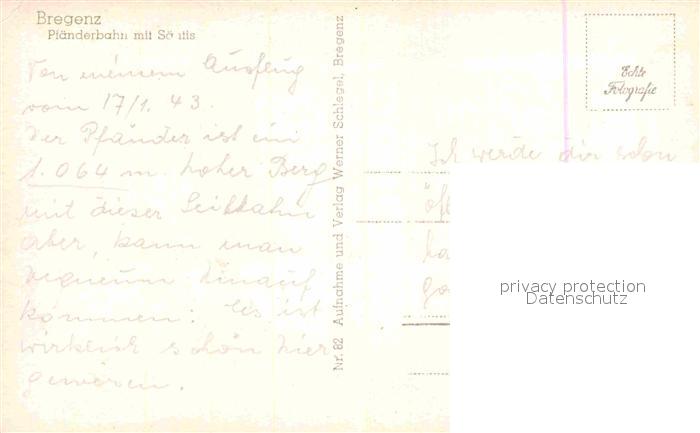 Bregenz
Pfänderbahn mit Sä ntis
Von meinem Ausflug
vom 17/1. 43.
Der Pfänder ist ein
1.064 m. hoher Berg
mit dieser Seilbahn
aber, kann man
bequeum hinauf
kommen: Es ist
wirklich schön hier
gewesen.
Nr. 82 Aufnahme und Verlag Werner Schlegel, Bregenz
Echte
Fotografie
Ich werde dir schon
privacy protection
Datenschutz